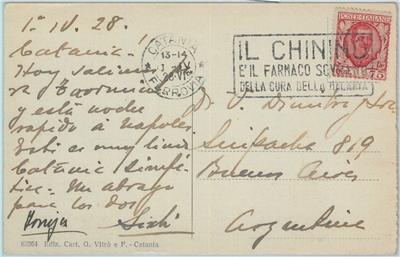 1º IV. 28.
Catania.
Hoy salimos
a Taormina
y esta noche
rapido a Napoles.
Esto es muy lindo
Catania simpá-
tica. Un abrazo
para los dos
CATANIA
13-14
1 IV
28 VI
FERROVIA
IL CHININO
È IL FARMACO SOVRANO
DELLA CURA DELLA MALARIA
POSTE ITALIANE
75
Suipacha 869
Buenos Aires
Argentina
Ediz. Cart. G. Vitrò e F. - Catania